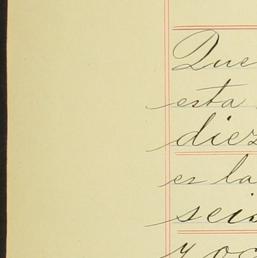 Que
esta
diez
es la
seis
y oc